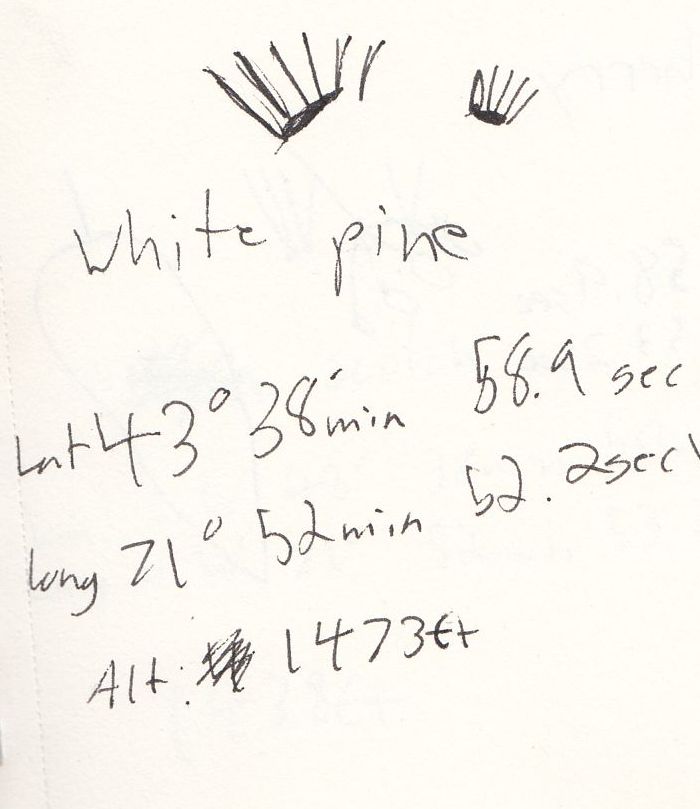 white pine
Lat 43° 38' min 58.9 sec
long 71° 52 min 52.2 sec
Alt: 1473 ft